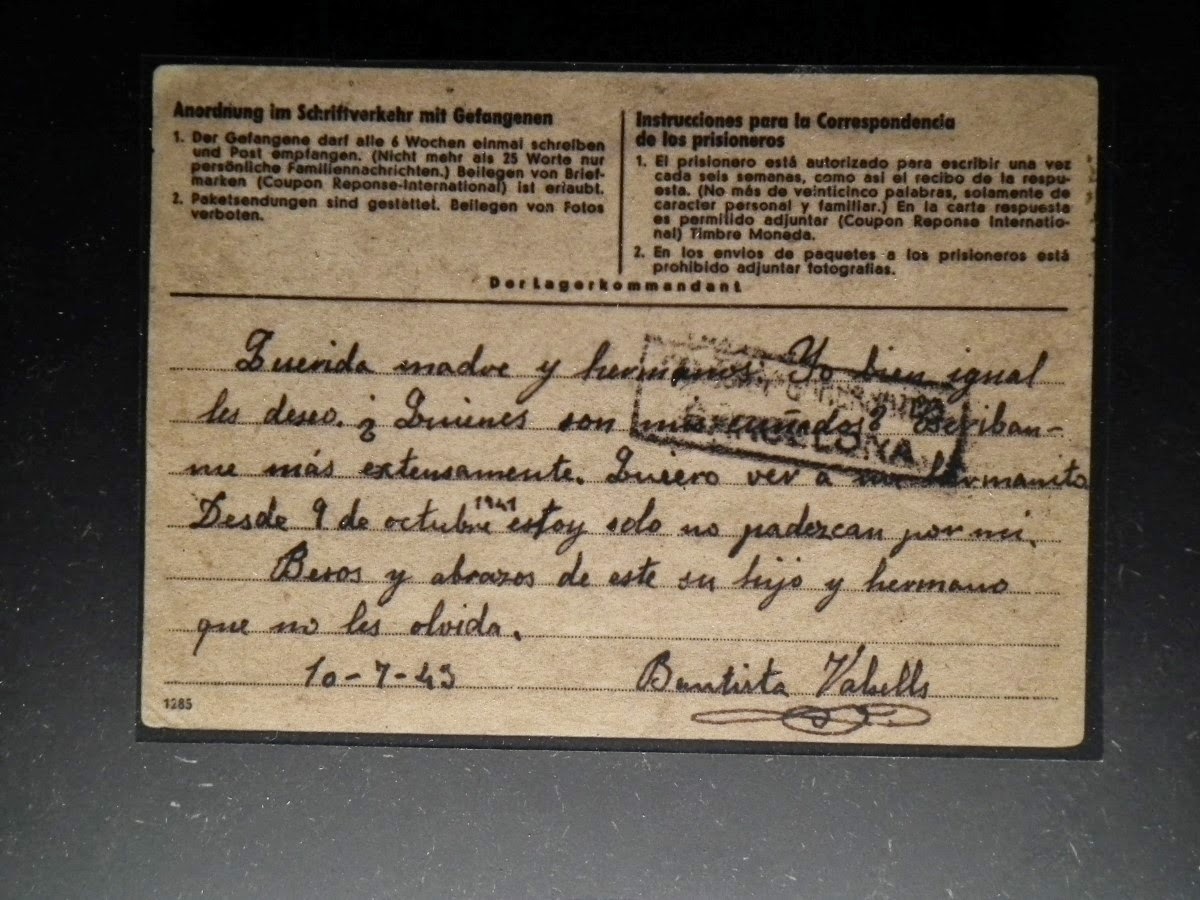 Anordnung im Schriftverkehr mit Gefangenen
1. Der Gefangene darf alle 6 Wochen einmal schreiben
und Post empfangen. (Nicht mehr als 25 Worte nur
persönliche Familiennachrichten.) Beilegen von Brief-
marken (Coupon Reponse-International) ist erlaubt.
2. Paketsendungen sind gestattet. Beilegen von Fotos
verboten.
Instrucciones para la Correspondencia
de los prisioneros
1. El prisionero está autorizado para escribir una vez
cada seis semanas, como asi el recibo de la respu-
esta. (No más de veinticinco palabras, solamente de
caracter personal y familiar.) En la carta respuesta
es permitido adjuntar (Coupon Reponse Internatio-
nal) Timbre Moneda.
2. En los envios de paquetes a los prisioneros está
prohibido adjuntar fotografias.
Der Lagerkommandant
Querida madre y hermanos. Yo bien igual
les deseo. ¿ Quienes son mis cuñados? Escriban-
me más extensamente. Quiero ver a mi hermanito
Desde 9 de octubre 1941 estoy solo no padezcan por mi.
Besos y abrazos de este su hijo y hermano
que no les olvida.
10-7-43 Bautista Valsells
1285
BARCELONA